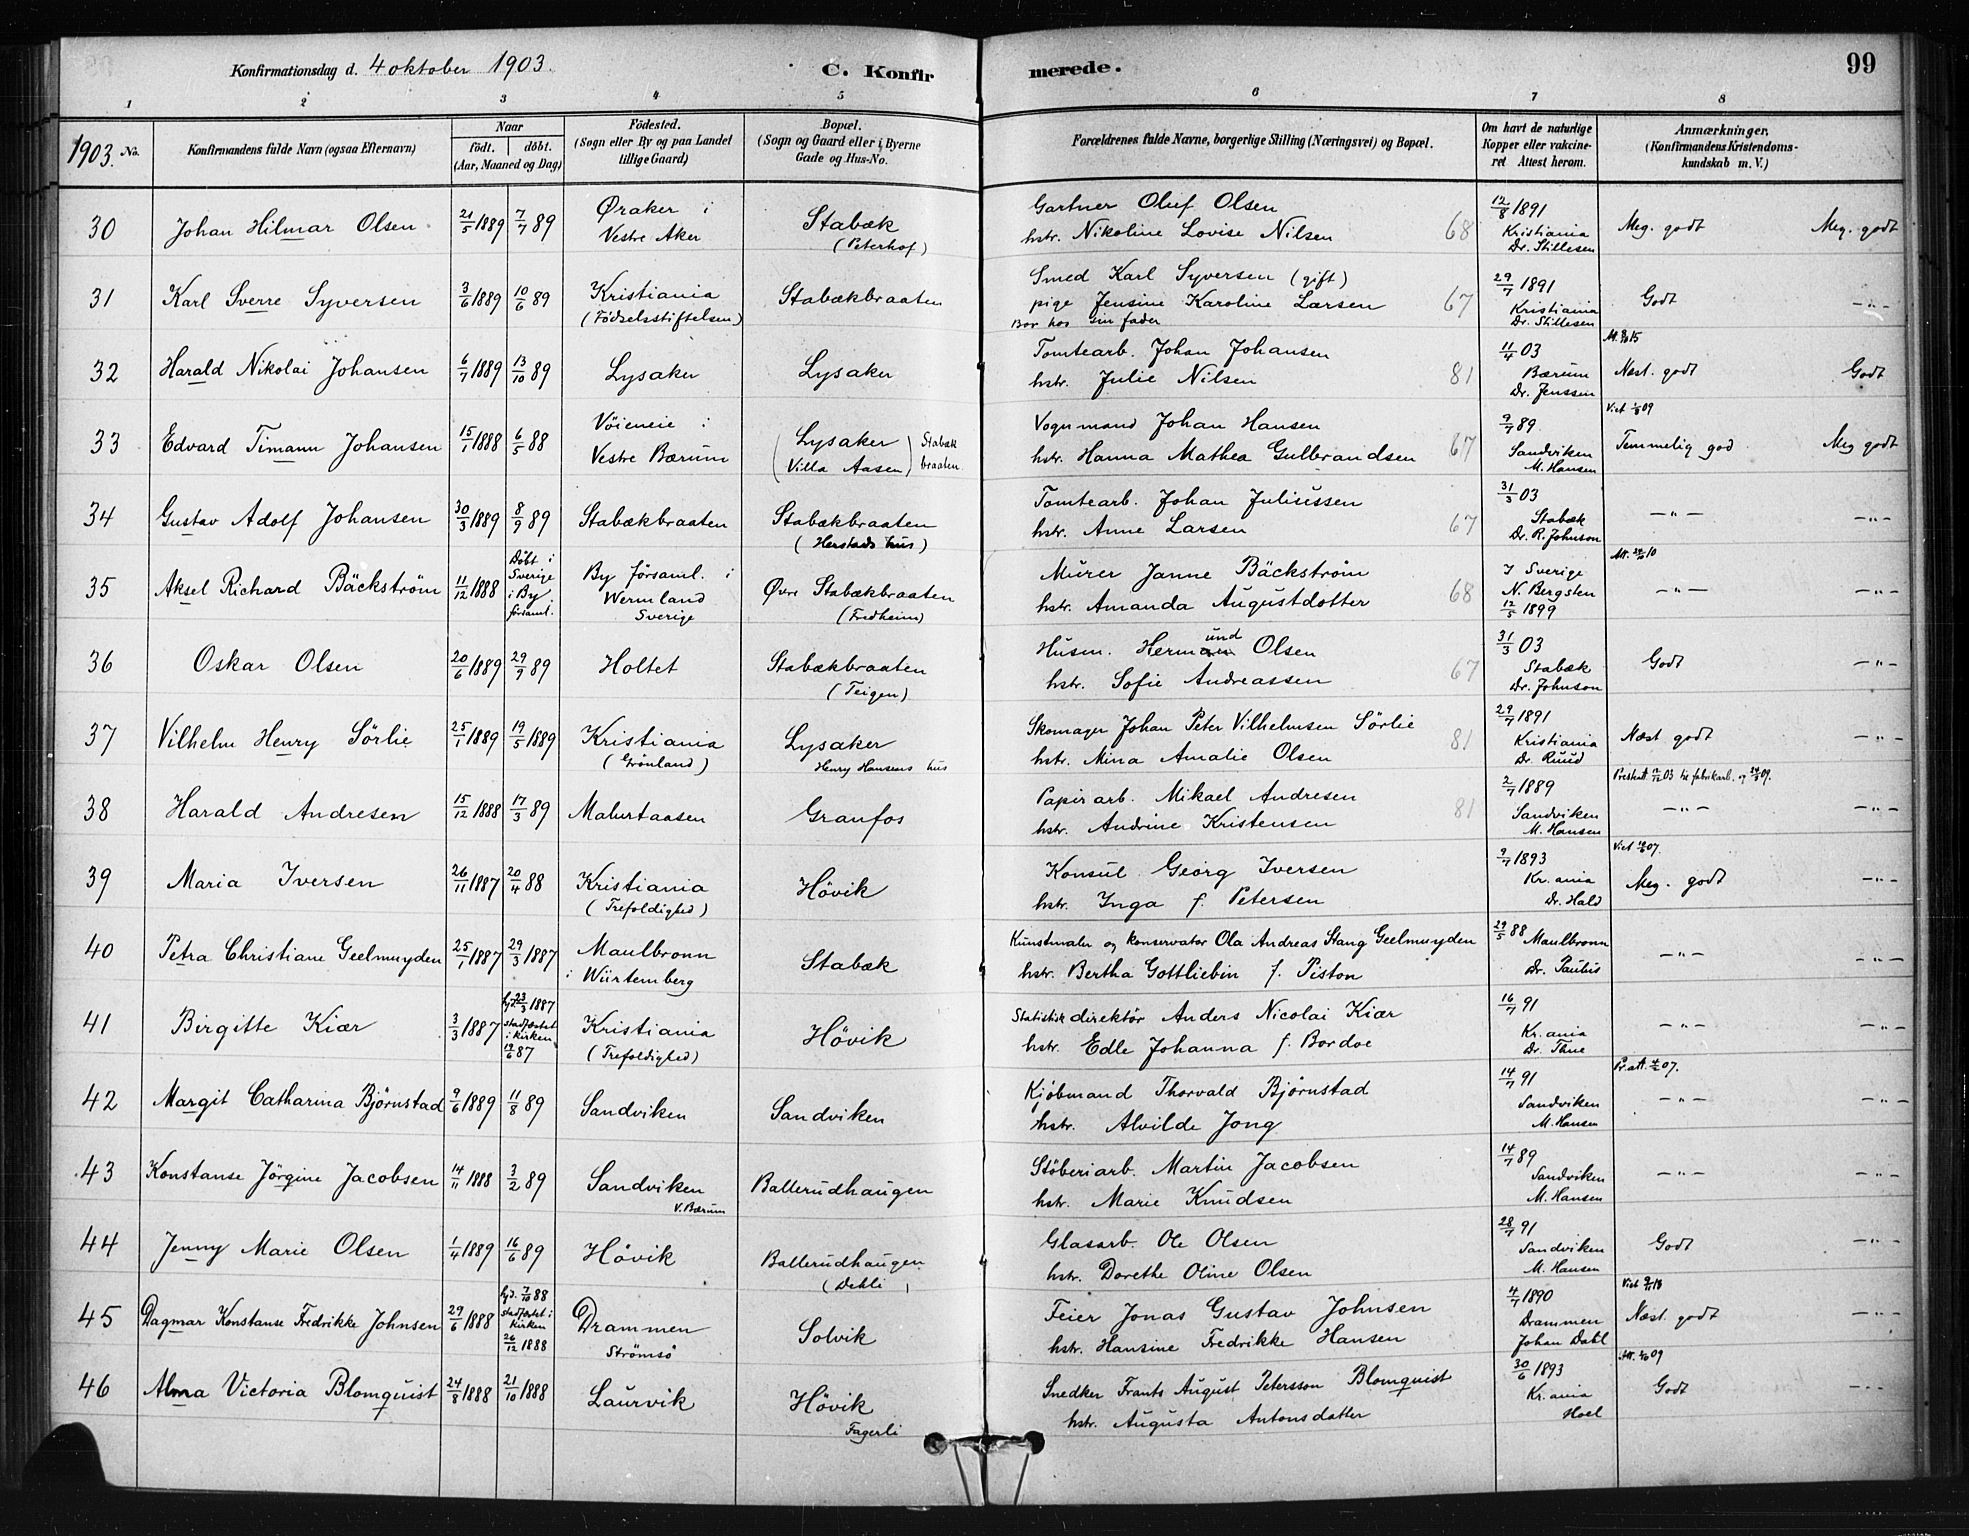 Konfirmationsdag d. 4 oktober 1903. C. Konfirmerede. 99
1 2 3 4 5 6 7 8
1903. No.
Konfirmandens fulde Navn (ogsaa Efternavn)
Naar
födt. döbt.
(Aar, Maaned og Dag)
Födested.
(Sogn eller By og paa Landet
tillige Gaard)
Bopæl.
(Sogn og Gaard eller i Byerne
Gade og Hus-No.
Forældrenes fulde Navne, borgerlige Stilling (Næringsvei) og Bopæl.
Om havt de naturlige
Kopper eller vakcine-
ret Attest herom.
Anmærkninger.
(Konfirmandens Kristendoms-
kundskab m. V.)
30 Johan Hilmar Olsen 21/5 1889 7/7 89 Øraker i
Vestre Aker
Stabæk
(Peterhof)
Gartner Oluf Olsen
hstr. Nikoline Lovise Nilsen 68
12/8 1891
Kristiania
Dr. Stillesen
Meg. godt Meg. godt
31 Karl Sverre Syversen 3/6 1889 10/6 89 Kristiania
(Födselsstiftelsen)
Stabækbraaten
Smed Karl Syversen (gift)
pige Jensine Karoline Larsen 67
Bor hos sin fader
29/7 1891
Kristiania
Dr. Stillesen
Godt -"-
32 Harald Nikolai Johansen 6/7 1889 13/10 89 Lysaker Lysaker
Tomtearb. Johan Johansen
hstr. Julie Nilsen 81
11/4 03
Bærum
Dr. Jenssen
Næst. godt Godt
33 Edvard Timann Johansen 15/1 1888 6/5 88 Vöieneie i
Vestre Bærum
(Lysaker
Villa Aasen) Stabæk
braaten
Vognmand Johan Hansen
hstr. Hanna Mathea Gulbrandsen 67
9/7 89
Sandviken
M. Hansen
Temmelig god Meg godt
34 Gustav Adolf Johansen 30/3 1889 8/9 89 Stabækbraaten Stabækbraaten
(Herstads hus)
Tomtearb. Johan Julisussen
hstr. Anne Larsen 67
31/3 03
Stabæk
Dr. R. Johnson
-"- -"-
35 Aksel Richard Bäckström 11/12 1888 Döbt i
Sverige
i By
församl.
By församl. i
Wermland
Sverige
Øvre Stabækbraaten
(Fredheim)
Murer Janne Bäckström
hstr. Amanda Augustdotter 68
I Sverige
N. Bergsten
12/5 1899
-"- -"-
36 Oskar Olsen 20/6 1889 29/9 89 Holtet Stabækbraaten
(Teigen)
Husm. Hermund Olsen
hstr. Sofie Andreassen 67
31/3 03
Stabæk
Dr. Johnson
Godt -"-
37 Vilhelm Henry Sörlie 25/1 1889 19/5 1889 Kristiania
(Grönland)
Lysaker
Henry Hansens hus
Skomager Johan Peter Vilhelmsen Sörlie
hstr. Mina Amalie Olsen 81
29/7 1891
Kristiania
Dr. Ruud
Næst godt -"-
38 Harald Andresen 15/12 1888 17/3 89 Maburtaasen Granfos
Papirarb. Mikael Andresen
hstr. Andrine Kristensen 81
2/7 1889
Sandviken
M. Hansen
-"- -"-
39 Maria Iversen 26/11 1887 20/4 88 Kristiania
(Trefoldighed)
Hövik
Konsul Georg Iversen
hstr. Inga f. Petersen
9/7 1893
Kr.ania
Dr. Hald
Meg. godt -"-
40 Petra Christiane Geelmuyden 25/1 1887 29/3 1887 Maulbronn
i Würtemberg
Stabæk
Kunstmaler og konservator Ola Andreas Stang Geelmuyden
hstr. Bertha Gottliebin f. Piston
29/5 88 Maulbronn
Dr. Paulus
-"- -"-
41 Birgitte Kiær 3/3 1887 hjd. 23/3 1887
stadfæstet
i kirken
19/6 87
Kristiania
(Trefoldighed)
Hövik
Statistisk direktör Anders Nicolai Kiær
hstr. Edle Johanna f. Bordoe
16/7 91
Kr.ania
Dr. Thue
-"- -"-
42 Margit Catharina Björnstad 9/6 1889 11/8 89 Sandviken Sandviken
Kjöbmand Thorvald Björnstad
hstr. Alvilde Jong
14/7 91
Sandviken
M. Hansen
-"- -"-
43 Konstanse Jörgine Jacobsen 14/11 1888 3/2 89 Sandviken
V. Bærum
Ballerudhaugen
Stöberiarb. Martin Jacobsen
hstr. Marie Knudsen
14/7 89
Sandviken
M. Hansen
-"- -"-
44 Jenny Marie Olsen 1/4 1889 16/6 89 Hövik Ballerudhaugen
(Dehli)
Glasarb. Ole Olsen
hstr. Dorethe Oline Olsen
28/7 91
Sandviken
M. Hansen
Godt -"-
45 Dagmar Konstanse Fredrikke Johnsen 29/6 1888 hjd. 7/10 88
stadfæstet i
kirken
26/12 1888
Drammen
Strömsö
Solvik
Feier Jonas Gustav Johnsen
hstr. Hansine Fredrikke Hansen
4/7 1890
Drammen
Johan Dahl
Næst. godt -"-
46 Alma Victoria Blomquist 24/8 1888 21/10 1888 Laurvik Hövik
Fagerli
Snedker Frants August Petersson Blomquist
hstr. Augusta Antonsdatter
30/6 1893
Kr.ania
Hoel
Godt -"-